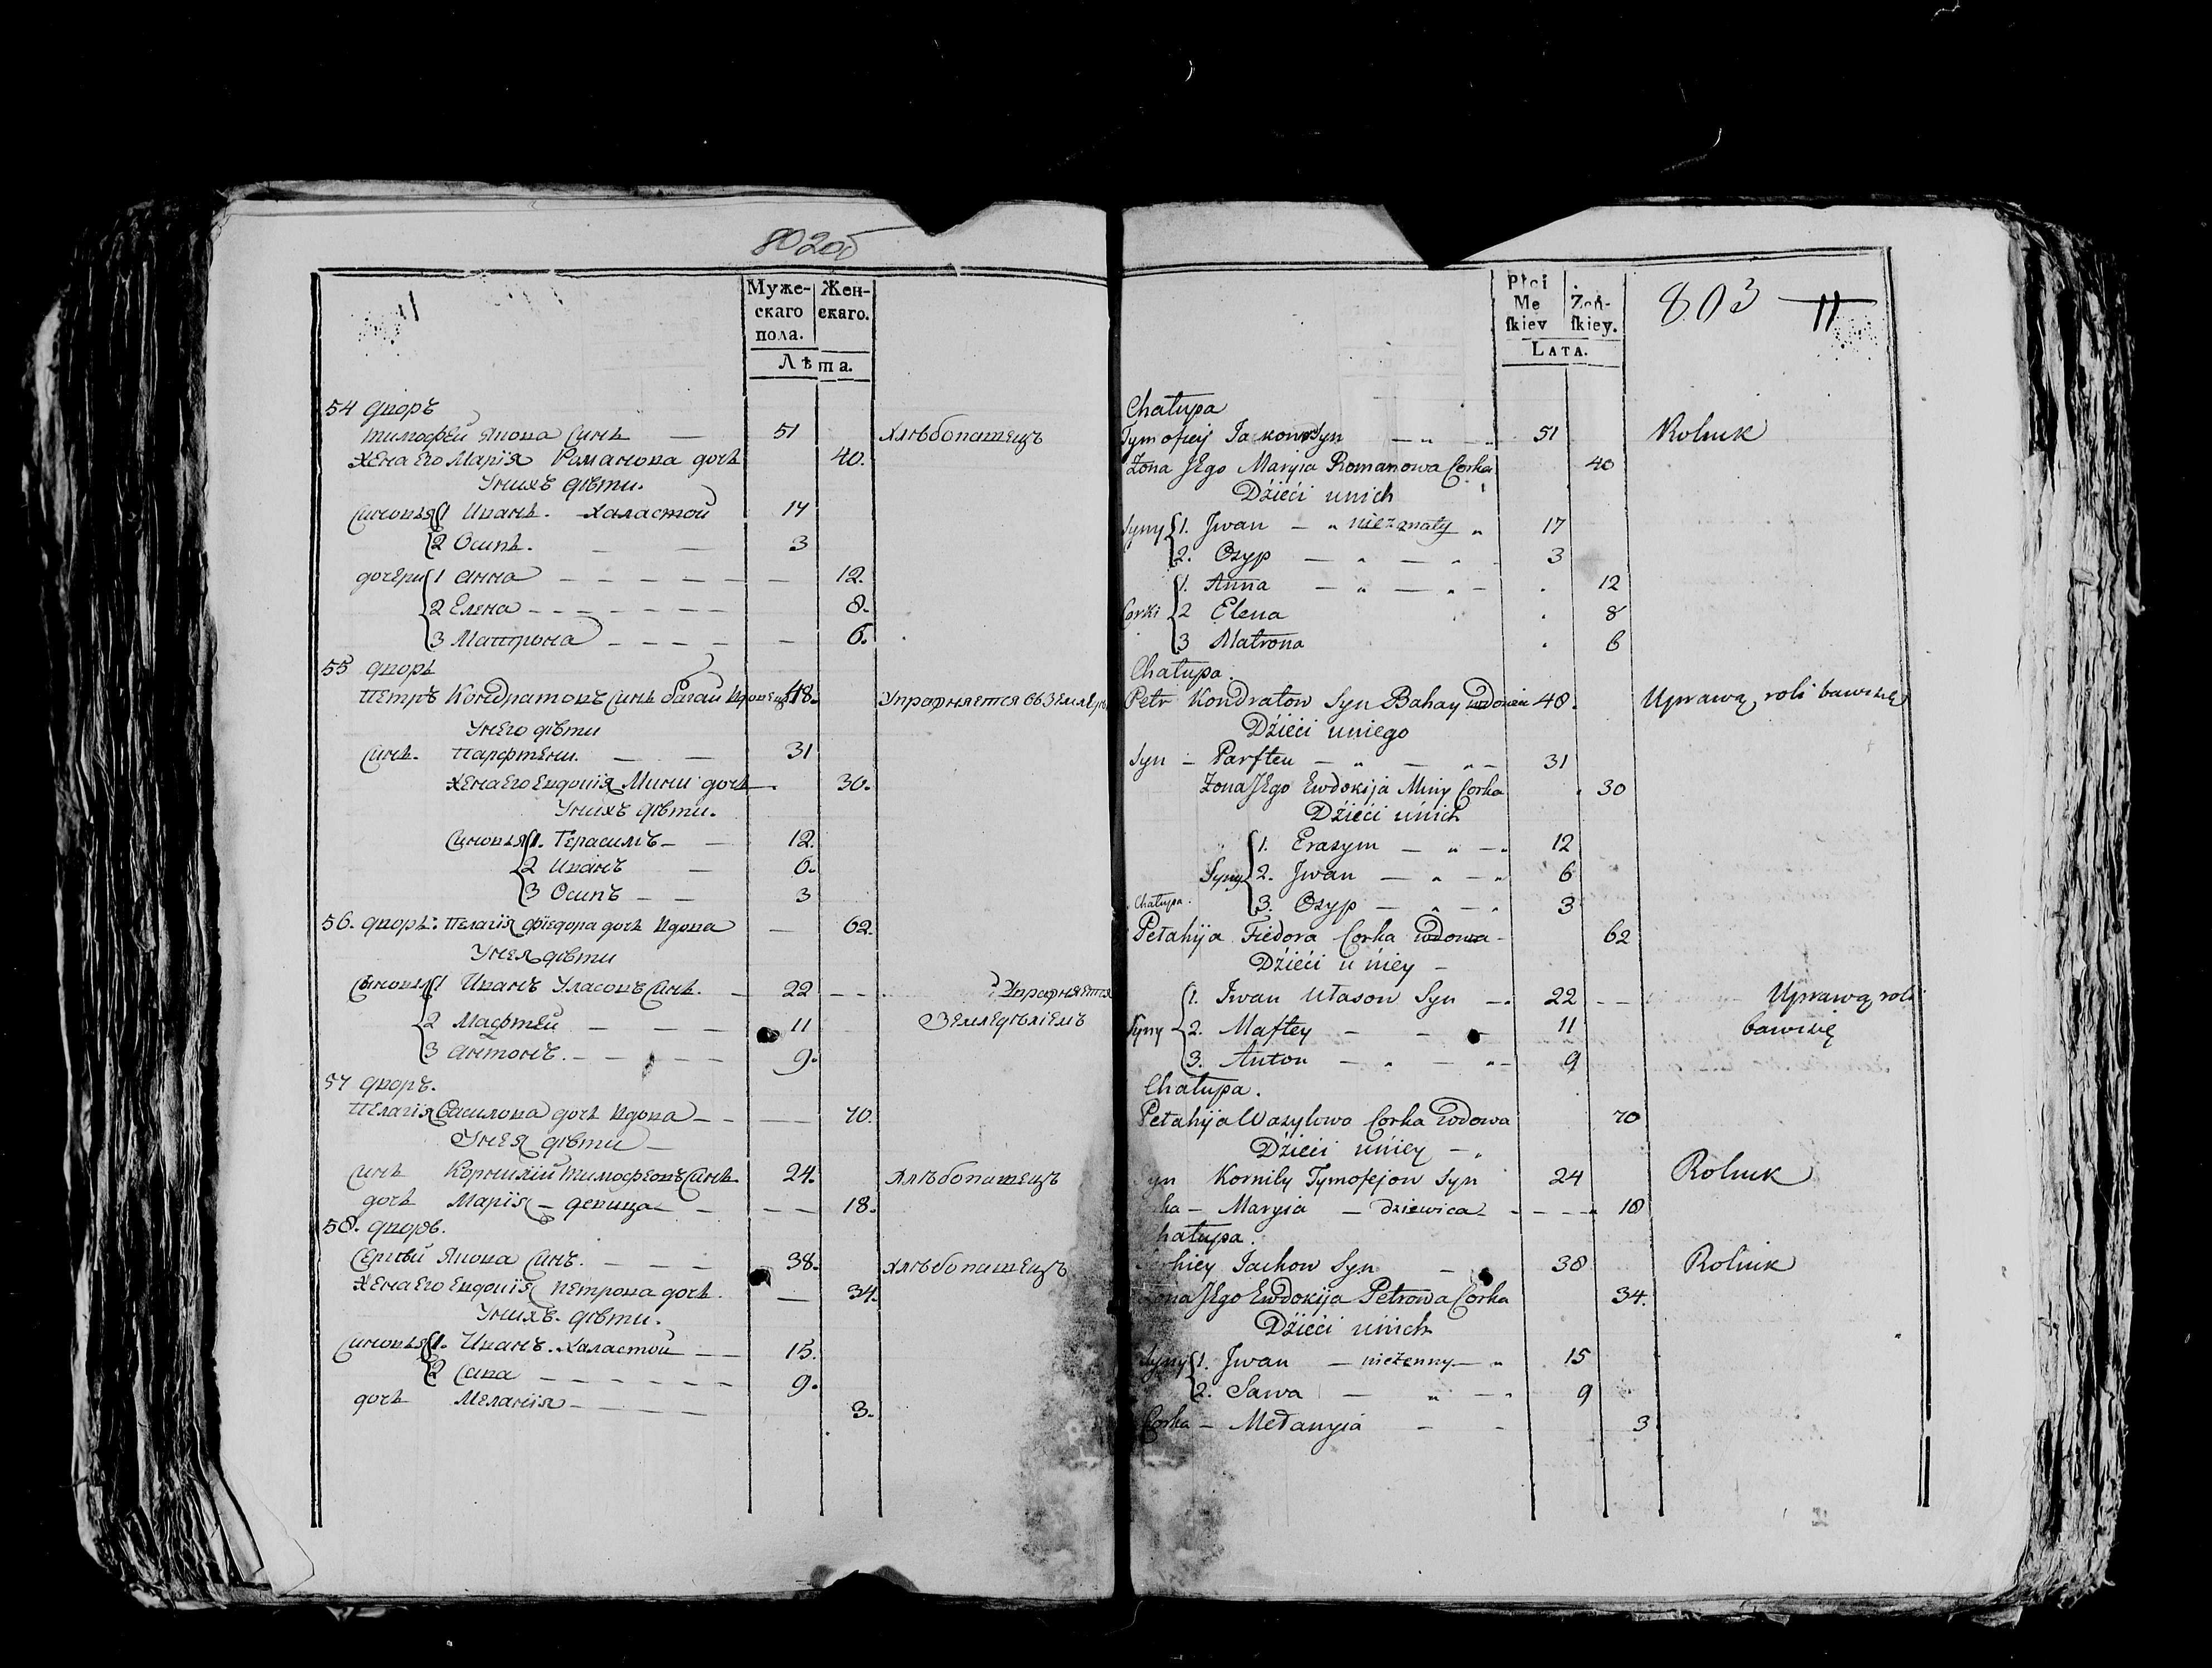 802об
Муже-
скаго
пола.
Жен-
скаго.
Лѣта.
54 дворъ
тимофей якова синъ — 51 хлѣбопашецъ
жена его Марія Романова дочь 40.
У нихъ дѣти.
синовья 1 Иванъ. халастой 17
2 Осипъ. — — 3
дочери 1 анна — — — 12.
2 Елена — — — 8.
3 Матрона — — — 6.
55 дворъ
Петръ Кондратовъ синъ багай вдовецъ 48. Упражняется въ Землед
У него дѣти
синъ. Парфтени. — — 31
жена его Евдокія Мини дочь — 30.
У нихъ дѣти.
синовья 1. Герасимъ — — 12.
2 Иванъ — 6.
3 Осипъ — — 3
56. дворъ. Пелагія фіедора дочь вдова — 62.
У нея дѣти
синовья 1 Иванъ Уласовъ синъ. — 22 — — Упражняется
2 Мафтей — — — 11 Земледѣліемъ
3 антонъ. — — — 9.
57 дворъ.
Пелагія Василова дочь вдова — — — 70.
У нея дѣти —
синъ Корнилій тимофеовъ синъ 24. хлѣбопашецъ
дочь Марія — девица — — — 18.
58. дворъ.
Сергѣй якова синъ. — — — 38. хлѣбопашецъ
жена его Евдокія Петрова дочь. — 34.
У нихъ. дѣти.
синовья 1. Иванъ. халастой — — 15.
2 Сава — — — — 9.
дочь Меланія — — — 3.
Płci
Mę
skiey
Żeń-
skiey.
LATA.
803
11
Chałupa
Tymofiej Jakowa Syn — „ — „ 51 Rolnik
Żona Jego Maryia Romanowa Corka 40
Dzieći unich
Syny 1. Jwan — „ nieżonaty „ 17
2. Ozyp — „ — „ 3
Corki 1. Anna — „ — „ — 12
2 Elena 8
3 Matrona 6
Chałupa.
Petr Kondratow Syn Bahay wdowiec 48. Uprawą roli bawi się
Dzieći uniego
Syn — Parften — „ — „ — 31
Żona Jego Ewdokija Miny Corka 30
Dzieći unich
Syny 1. Erazym — „ — „ 12
2. Jwan — „ — „ 6
3. Ozyp — „ — „ 3
Chałupa.
Pełahija Fiedora Corka wdowa — 62
Dzieći u niey —
Syny 1. Jwan Ułasow Syn — 22 — — Uprawą roli
2. Maftey — — — 11 bawi się
3. Anton — „ — „ — 9
Chałupa.
Pełahija Wasylowa Corka wdowa 70
Dzieći uniey — „
Syn Korniły Tymofejow Syn 24 Rolnik
ka — Maryia — dziewica — — — — 18
hałupa.
hiey Jachow Syn — 38 Rolnik
Żona Jego Ewdokija Petrowa Corka 34.
Dzieći unich
Syny 1. Jwan — nieżenny — „ 15
2. Sawa — „ — „ 9
Corka — Mełanyia — — 3